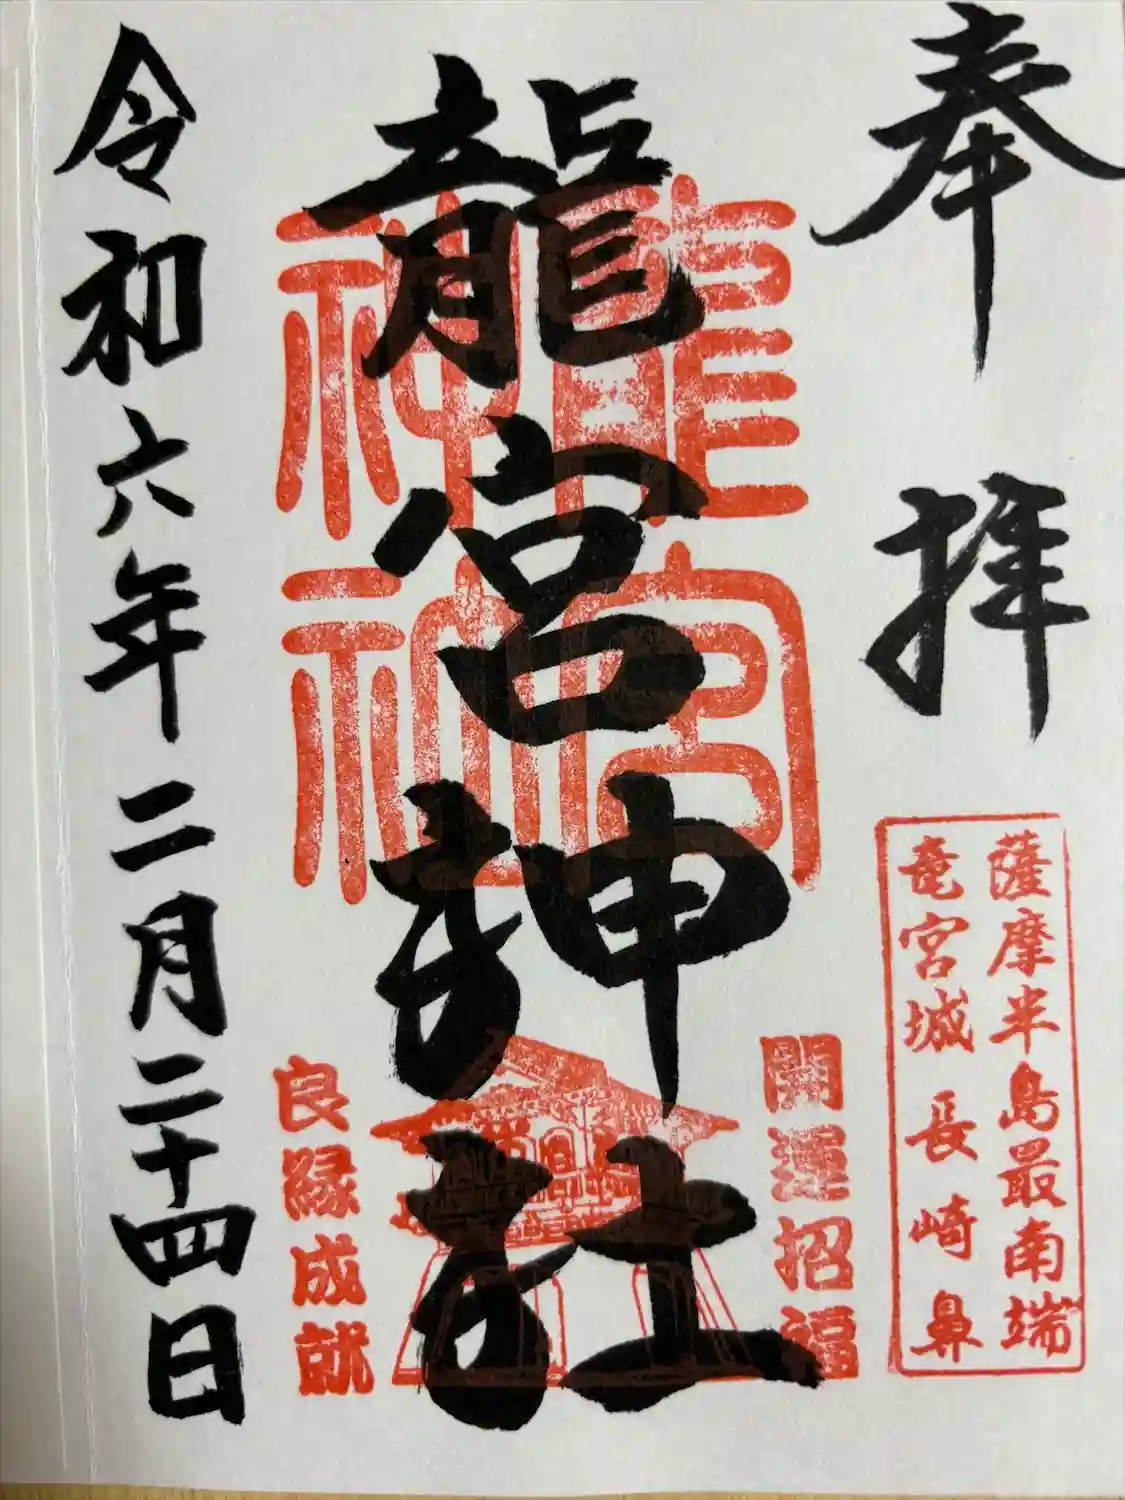 奉拝
薩摩半島最南端
竜宮城長崎鼻
龍宮神社
龍宮
神社
開運招福
良縁成就
令和六年二月二十四日